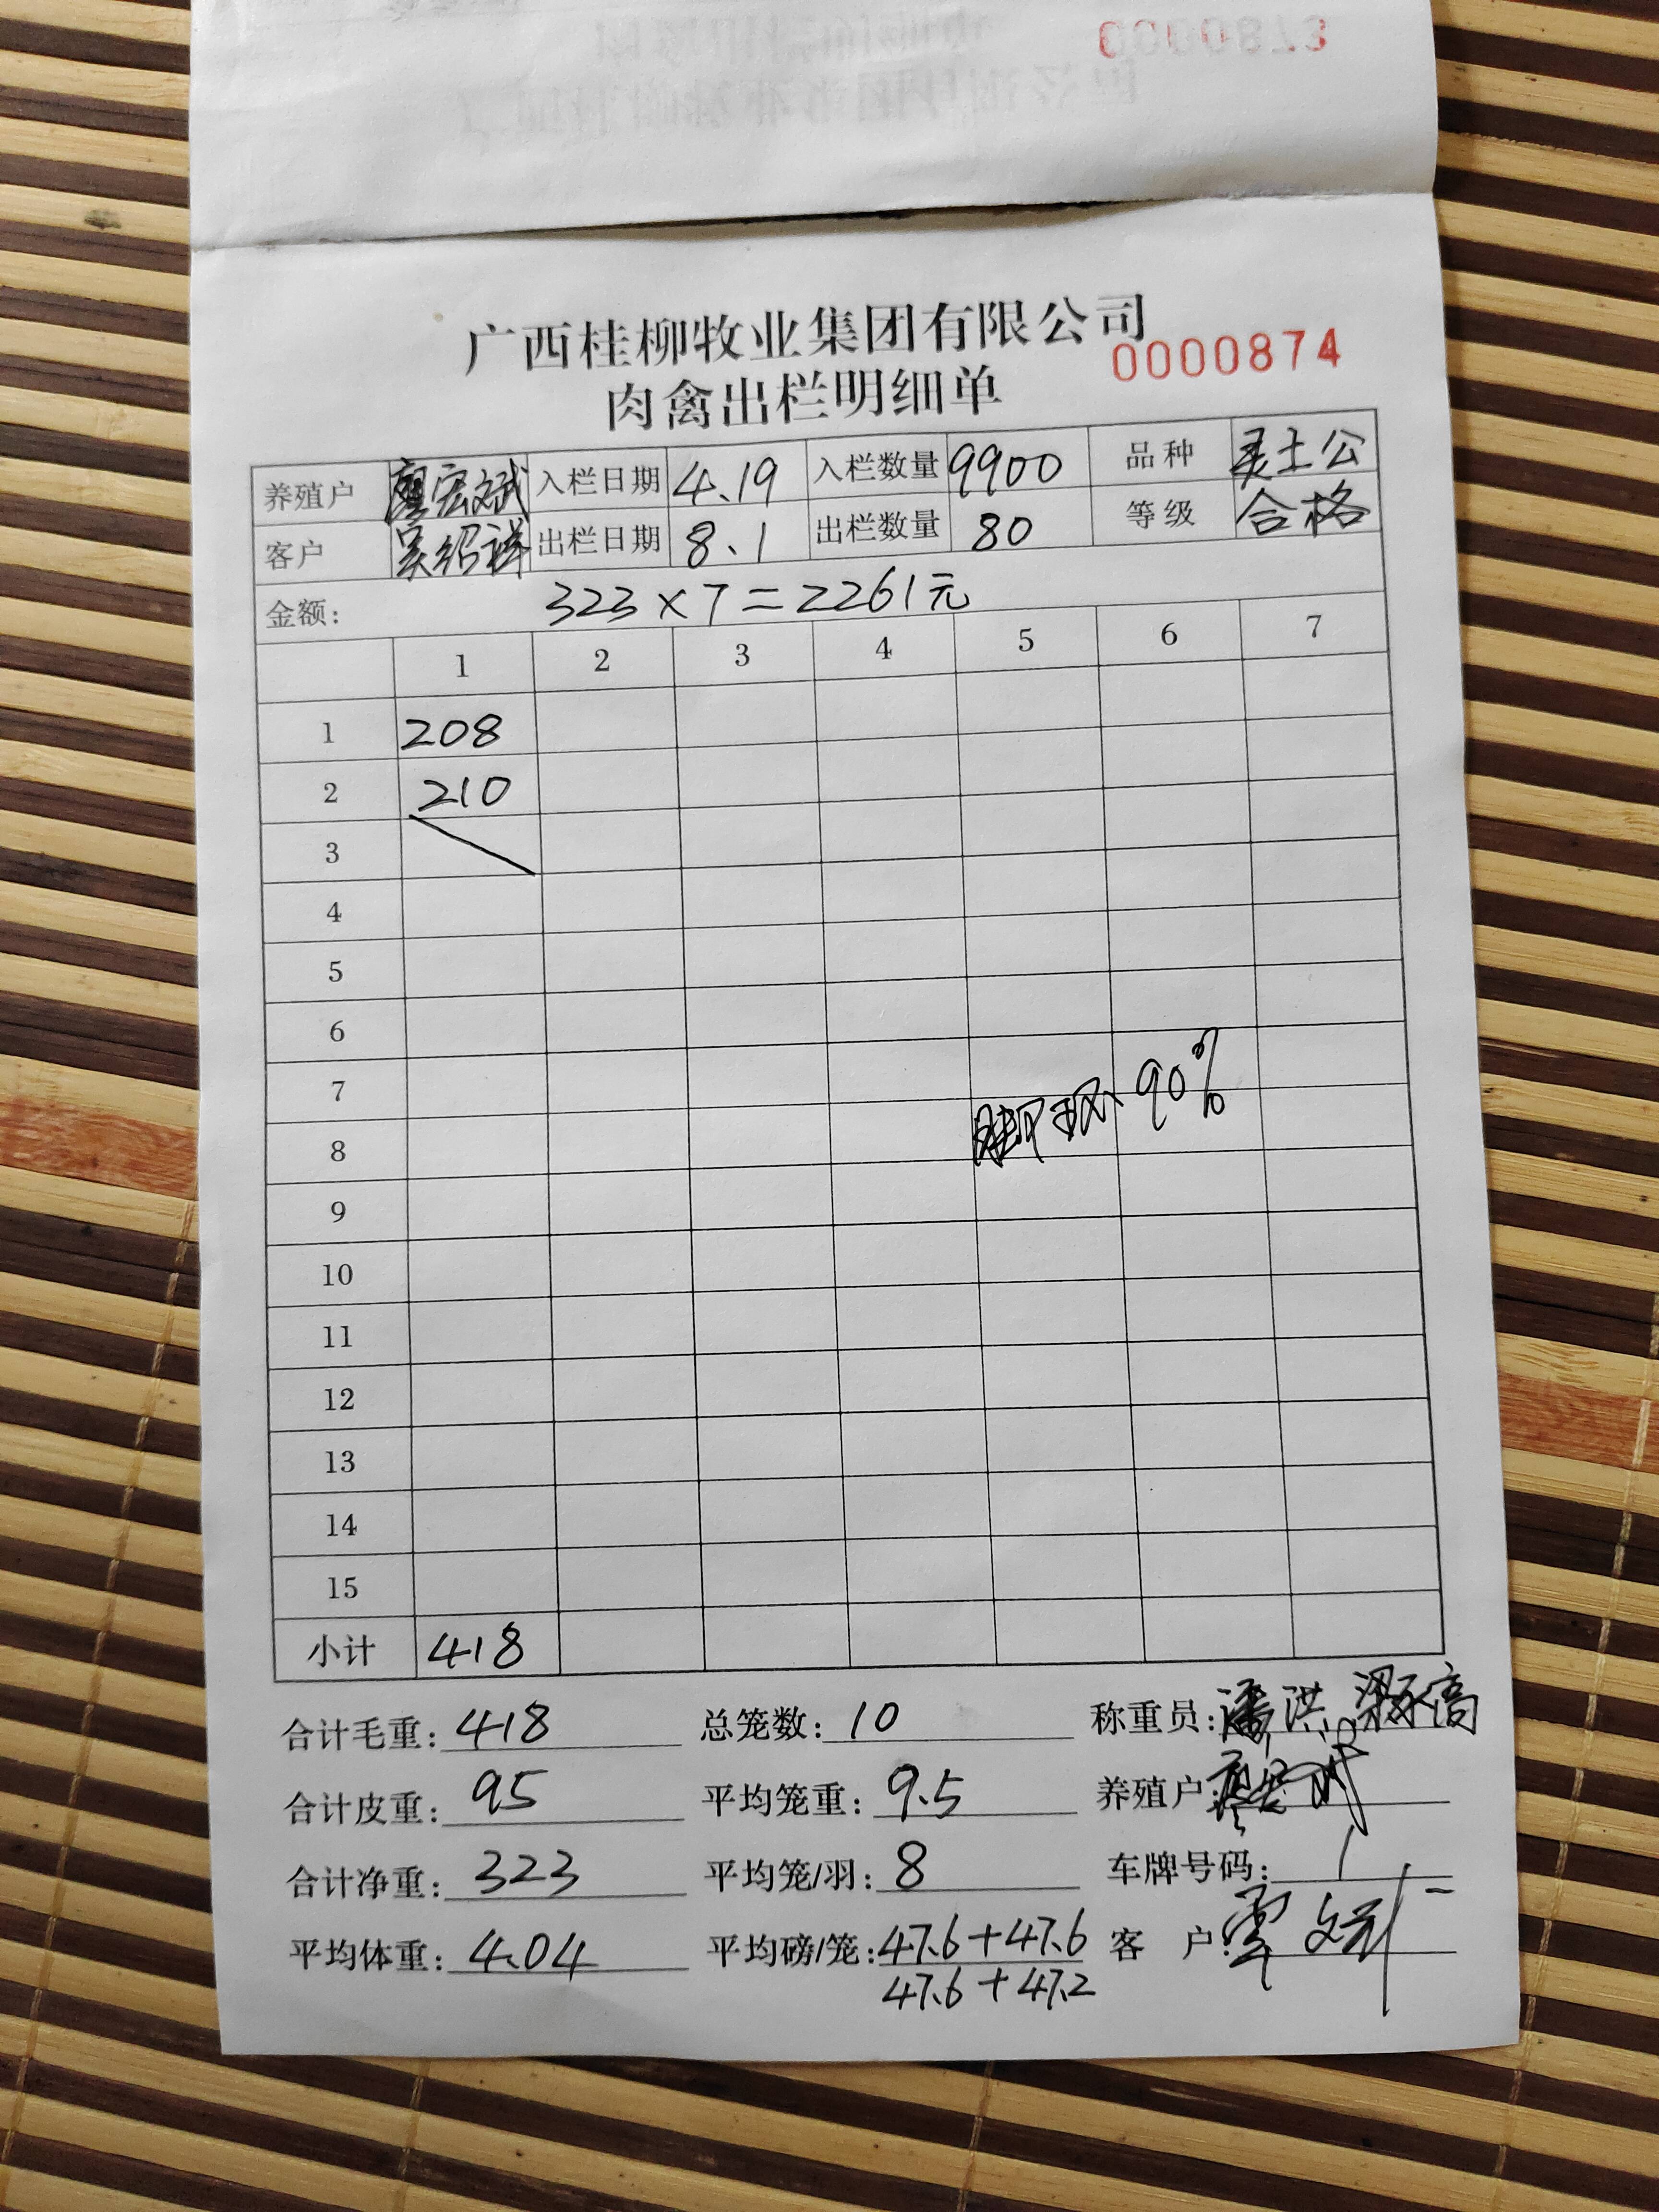 0000873
广西桂柳牧业集团有限公司
0000874
肉禽出栏明细单
养殖户 廖宏斌 入栏日期 4.19 入栏数量 9900 品种 灵土公
客户 吴绍祥 出栏日期 8.1 出栏数量 80 等级 合格
金额: 323×7=2261元
1 2 3 4 5 6 7
1 208
2 210
3
4
5
6
7
8 90%
9
10
11
12
13
14
15
小计 418
合计毛重: 418 总笼数: 10 称重员: 潘洪
合计皮重: 95 平均笼重: 9.5 养殖户:
合计净重: 323 平均笼/羽: 8 车牌号码:
平均体重: 4.04 平均磅/笼: 47.6+47.6 客户:
47.6+47.2